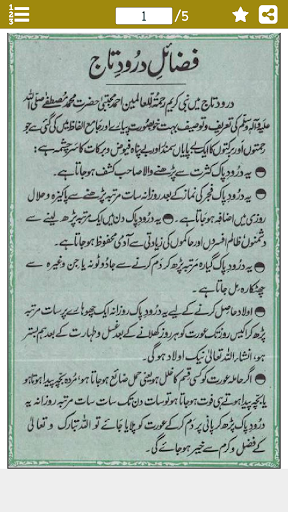 1 /5
فضائلِ درودِ تاج
درود تاج میں نبی کریم رحمۃ للعالمین احمد مجتبیٰ حضرت محمد مصطفےٰ صلی اللہ
علیہ وآلہ وسلم کی تعریف و توصیف بہت خوبصورت پیارے اور جامع الفاظ میں کی گئی ہے جو
رحمتوں اور برکتوں کا ایک بے پایاں سمندر اور بے پناہ فیوض و برکات کا سرچشمہ ہے :
یہ درود پاک کثرت سے پڑھنے والا صاحب کشف ہو جاتا ہے۔
یہ درود پاک فجر کی نماز کے بعد روزانہ سات مرتبہ پڑھنے سے پاکیزہ و حلال
روزی میں اضافہ ہو جاتا ہے۔ یہ درود پاک دن میں ایک مرتبہ پڑھ لینے سے
دشمنوں ظالم افسروں اور حاکموں کی زیادتی سے آدمی محفوظ ہو جاتا ہے۔
یہ درود پاک گیارہ مرتبہ پڑھ کر دم کرنے سے جادو ٹونہ یا جن وغیرہ سے
چھٹکارہ مل جاتا ہے۔
اولاد حاصل کرنے کے لیے یہ درود پاک روزانہ ایک چھوہارے پر سات مرتبہ
پڑھ کر اکیس روز تک عورت کو ہر روز کھلانے کے بعد غسل و طہارت کے بعد ہم بستر
ہو، انشاء اللہ تعالیٰ نیک اولاد ہو گی۔
اگر حاملہ عورت کو کسی قسم کا خلل ہو یعنی حمل ضائع ہو جاتا ہو امردہ بچہ پیدا ہوتا ہو
یا بچہ پیدا ہوتے ہی فوت ہو جاتا ہو تو سات دن تک سات سات مرتبہ روزانہ یہ
درود پاک پڑھ کر پانی پر دم کر کے عورت کو پلایا جائے تو اللہ تبارک و تعالیٰ
کے فضل و کرم سے خیر ہو جائے گی۔